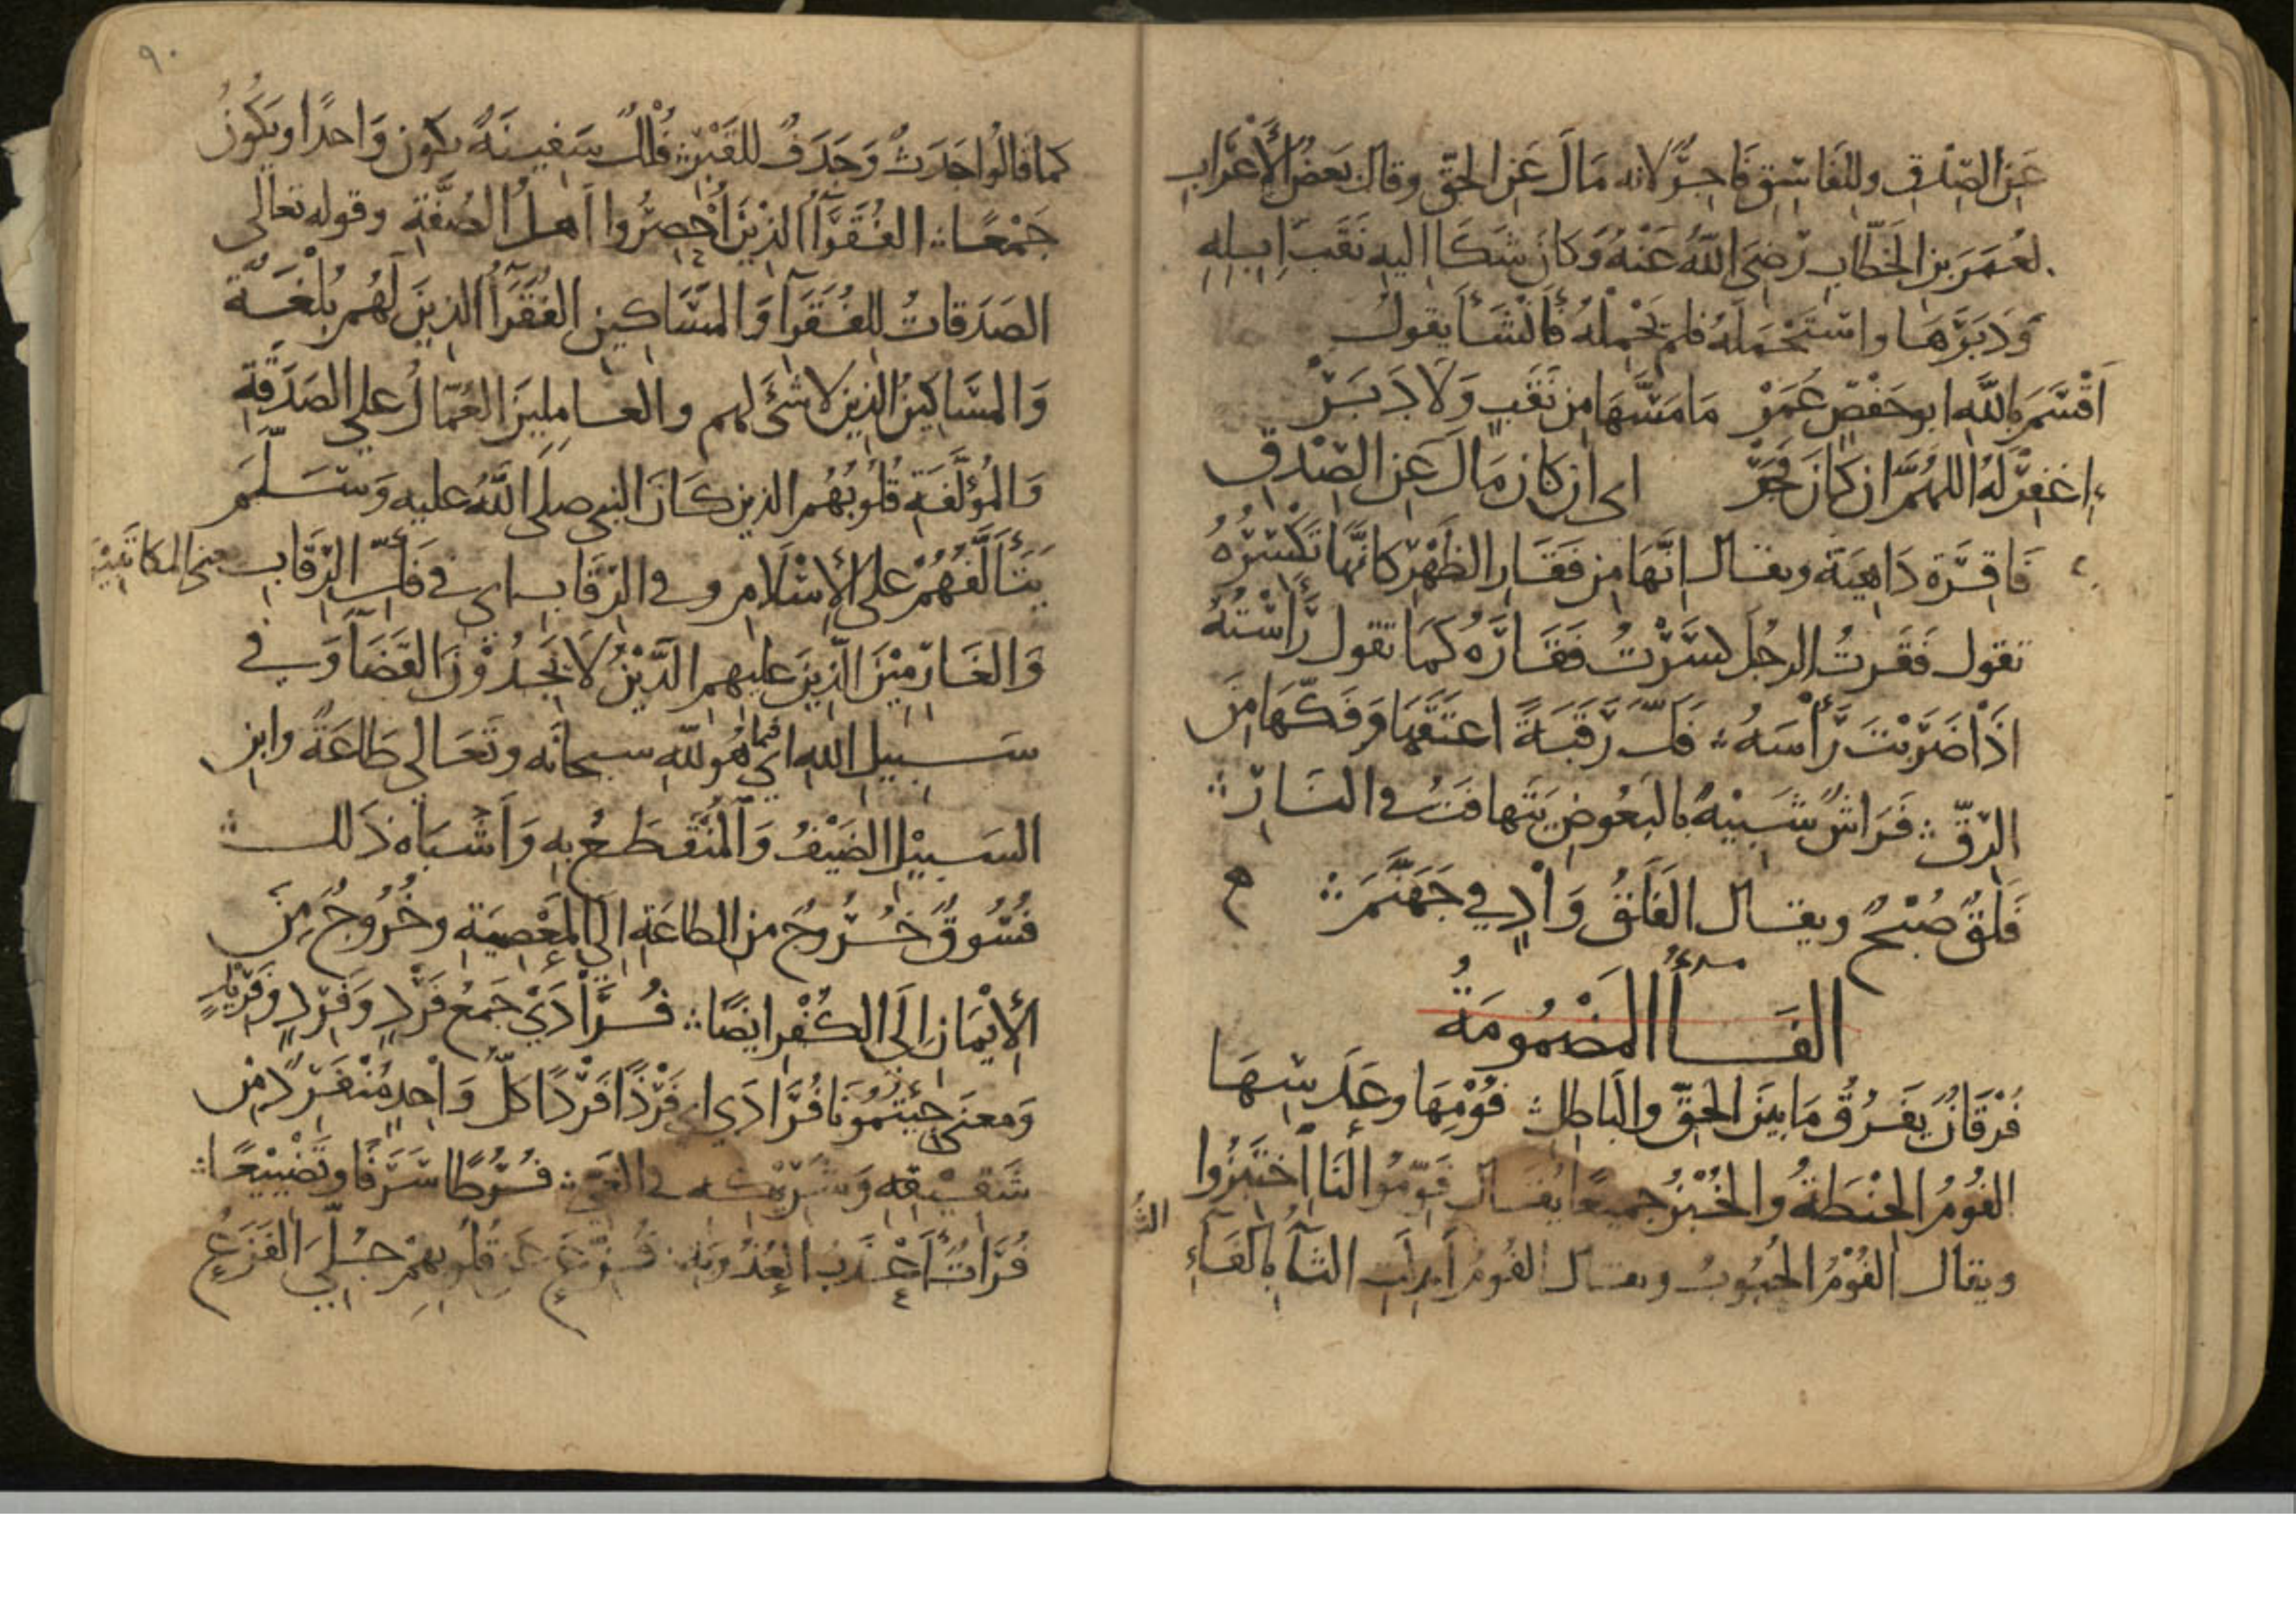 عَنِ الصِّدْقِ وللفَاسِقِ فَاجِرٌ لانه مَالَ عَنِ الحَقِّ وقال بَعضُ الأَعْرَابِ
لعُمَرَ بنِ الخَطَّابِ رَضِيَ اللَّهُ عَنْهُ وَكَانَ شَكَا اليهِ نَقَبَ اِبِلِهِ
وَدَبَرَهَا واسْتَحْمَلَهُ فلم يَحْمِلْهُ فَأَنْشَأَ يقولُ
اَقْسَمَ بِاللَّهِ ابو حَفْصٍ عُمَرْ مَا مَسَّهَا مِن نَقَبٍ وَلَا دَبَرْ
اغفِرْ لَهُ اللهُمَّ ان كَانَ فَجَرْ اى ان كان مَالَ عَنِ الصِّدْقِ
فَاقِرَة دَاهِيَة ويقال اِنَّهَا مِن فَقَارِ الظَّهْرِ كانَّهَا تَكْسِرُهُ
تقول فَقَرتُ الرجُلَ كسَرْتُ فَقَارَهُ كَمَا تقول رَأَسْتُهُ
اِذَا ضَرَبْتَ رَأْسَهُ فَكُّ رَقَبَةً اعتَقَهَا وَفَكَّهَا مِنَ
الرِّقِّ فَرَاشٌ شَبِيْهٌ بالبَعُوضِ يَتَهافَتُ في النَارِ
فَلَقٌ صُبْحٌ ويقال الفَلَقُ وَادٍ في جَهَنَّمَ
الفَاأُ المَضْمُومَةُ
فُرْقَانٌ يَفرُقُ مَا بَينَ الحَقِّ والبَاطِلِ فُوْمِهَا وعَدَسِهَا
الفُومُ الحِنْطَةُ والخُبْزُ جميعًا يُقَال فَوِّمُوا لَنَا اَخْتَبِزُوا
ويقال الفُوْمُ الحُبُوبُ ويقال الفُومُ اُبدِلَت الثَآءُ بالفَآءِ
كما قالُوا جَدَثٌ وَجَدَفٌ للقَبْرِ فُلْكٌ سَفِينَةٌ يكون وَاحدًا ويَكُونُ
جَمْعًا الفُقَرَآاُ الذِيْنَ اُحْصِرُوا اَهلُ الصُفَّةِ وقوله تعالى
الصَدَقاتُ للفُقَرَآ وَالمَسَاكِينِ الفُقَرَآاُ الذينَ لَهُم بُلْغَةٌ
وَالمسَاكِيْنُ الذين لا شَئَ لهم والعامِلِينَ العُمّالُ على الصَدَقَةِ
وَالمُؤَلَّفَةِ قُلُوبُهُم الذين كَانَ النبي صلى اللَّهُ عليه وَسَلَّمَ
يَتَأَلَّفُهُمْ على الإسْلَامِ وفي الرِّقَابِ اى في فَكِّ الرِّقَابِ يعنى المكاتَبِيْنَ
وَالغَارِمِيْنَ الَّذِينَ عليهم الَّدَيْنُ لَا يَجِدُوْنَ القَضَآ وَفي
سَبِيلِ اللهِ اي فيما هُوَ للَّهِ سبحانَه وتَعَالى طَاعَةٌ وابنِ
السَبِيْلِ الضَيْفُ وَالمُنْقَطَعُ بِهِ وَاَشْبَاهُ ذَلك
فُسُوقٌ خُرُوجٌ من الطاعَةِ الى المَعْصِيَةِ وخُرُوجٌ مِنَ
الإيْمَانِ اِلَى الكُفْرِ ايضًا فُرَادَىْ جَمعُ فَرْدٍ وَفَرِدٍ وفَرِيْدٍ
وَمعنى جِئْتُمُونَا فُرَادَى اى فَرْدًا فَرْدًا كلُّ وَاحِدٍ مُنْفَرِدٌ مِن
شَقِيْقِهِ وَشَرِيْكِهِ في الغَىِّ فُرُطًا سَرَفًا وتَضْيِيْعًا
فُرَاتٌ اَعْذَبُ العُذُوبَةِ فُزِّعَ عَن قُلُوبِهِمْ جُلِّيَ الفَزَعُ